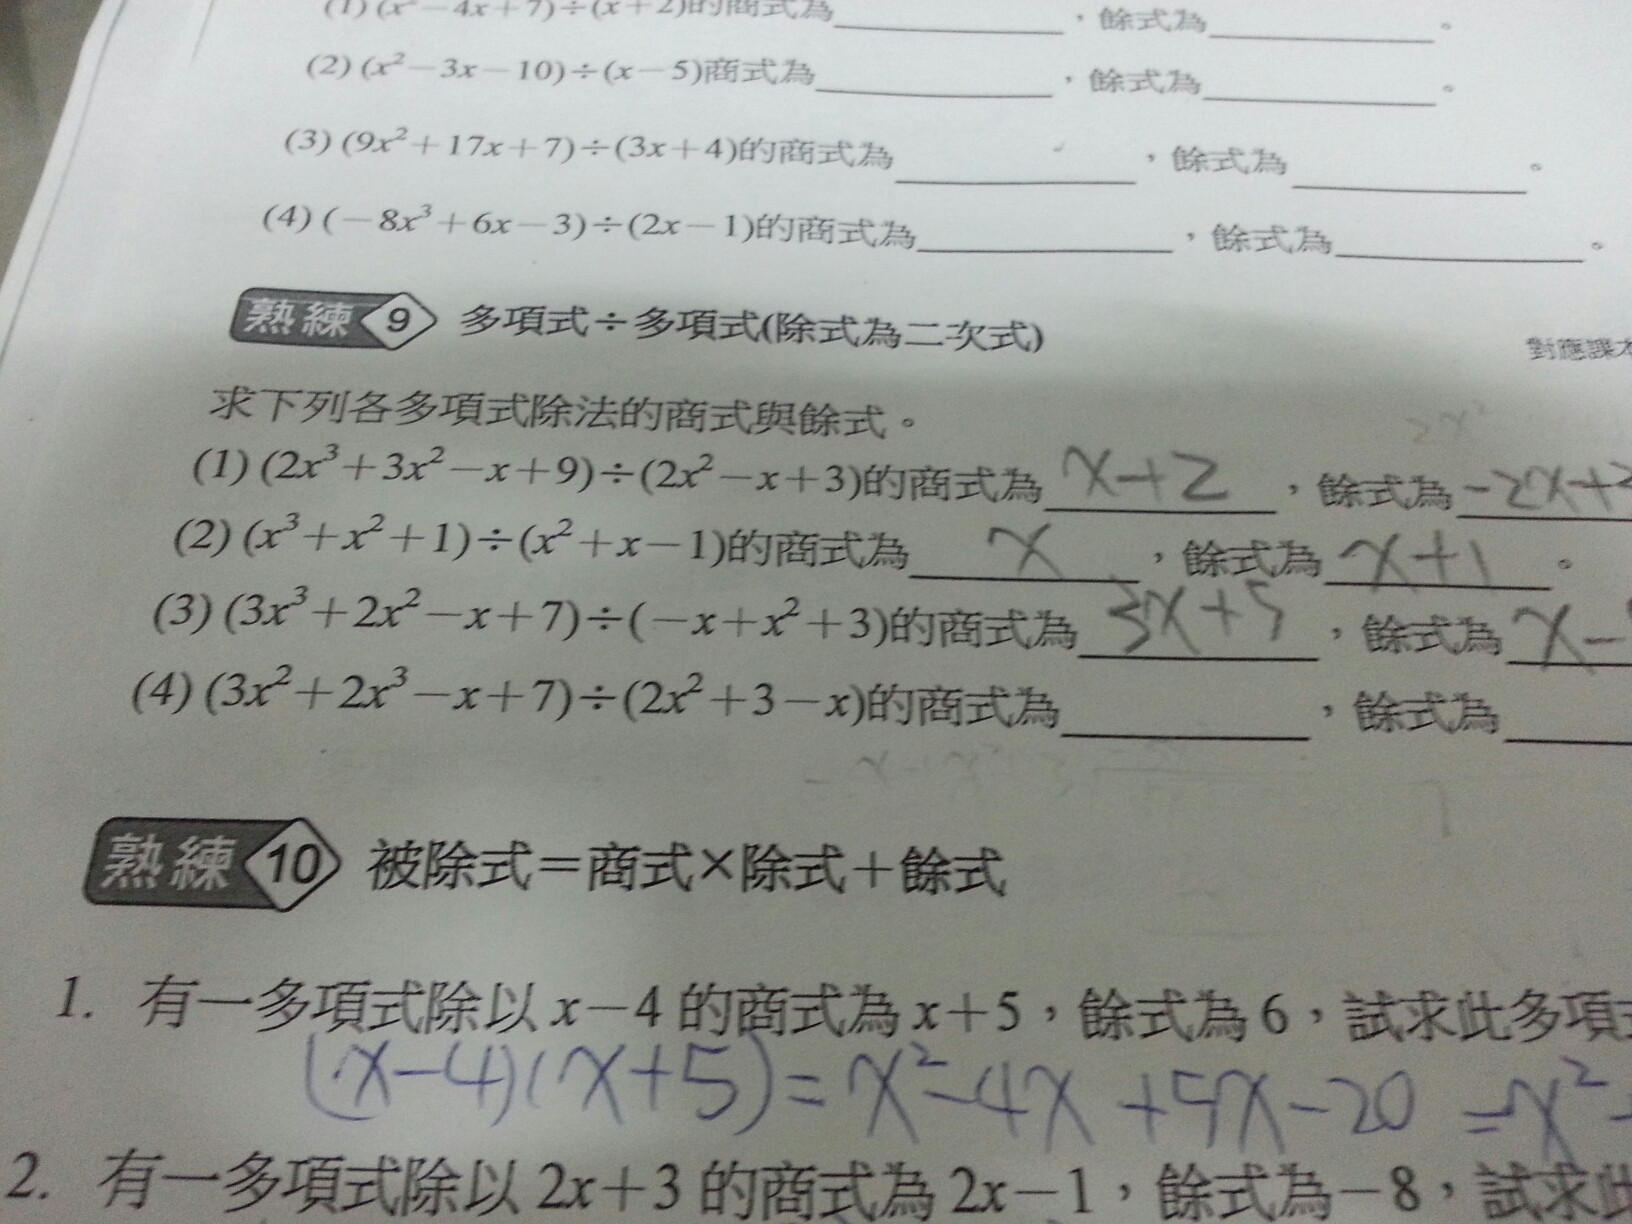 (1) (x²－4x＋7)÷(x＋2)的商式為＿＿＿＿，餘式為＿＿＿＿。
(2) (x²－3x－10)÷(x－5)商式為＿＿＿＿，餘式為＿＿＿＿。
(3) (9x²＋17x＋7)÷(3x＋4)的商式為＿＿＿＿，餘式為＿＿＿＿。
(4) (－8x³＋6x－3)÷(2x－1)的商式為＿＿＿＿，餘式為＿＿＿＿。
熟練 9 多項式÷多項式(除式為二次式)
對應課本
求下列各多項式除法的商式與餘式。
(1) (2x³＋3x²－x＋9)÷(2x²－x＋3)的商式為 x+2 ，餘式為 -2x+
(2) (x³＋x²＋1)÷(x²＋x－1)的商式為 x ，餘式為 x+1 。
(3) (3x³＋2x²－x＋7)÷(－x＋x²＋3)的商式為 3x+5 ，餘式為 x-
(4) (3x²＋2x³－x＋7)÷(2x²＋3－x)的商式為＿＿＿＿，餘式為＿＿＿＿
熟練 10 被除式＝商式×除式＋餘式
1. 有一多項式除以 x－4 的商式為 x＋5，餘式為 6，試求此多項式
(x-4)(x+5)=x²-4x+5x-20=x²
2. 有一多項式除以 2x＋3 的商式為 2x－1，餘式為－8，試求此